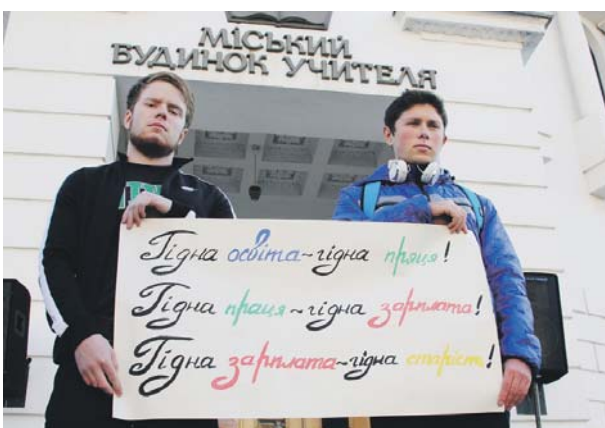 МІСЬКИЙ
БУДИНОК УЧИТЕЛЯ
Гідна освіта~гідна праця!
Гідна праця~гідна зарплата!
Гідна зарплата~гідна старість!